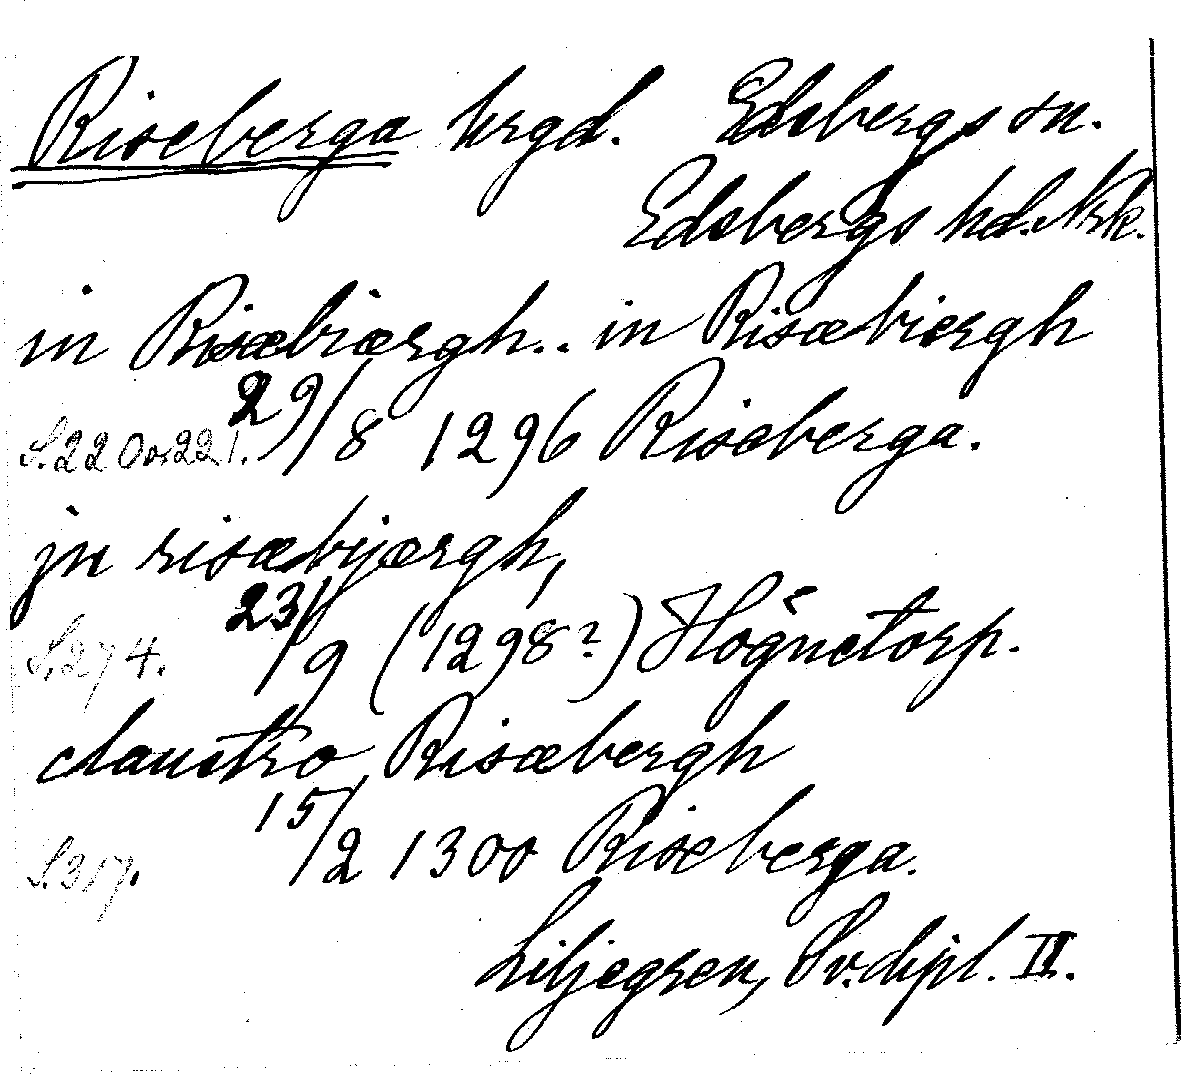 Riseberga hrgd. Edsbergs sn.
Edsbergs hd. Nrk.
in Risæbiærgh.. in Risæbiergh
S. 220 o. 221. 29/8 1296 Riseberga.
jn risæbjærgh,
S. 274. 23/9 (1298?) Högnetorp.
claustro Risæbergh
S. 317. 15/2 1300 Riseberga.
Liljegren, Sv. dipl. II.